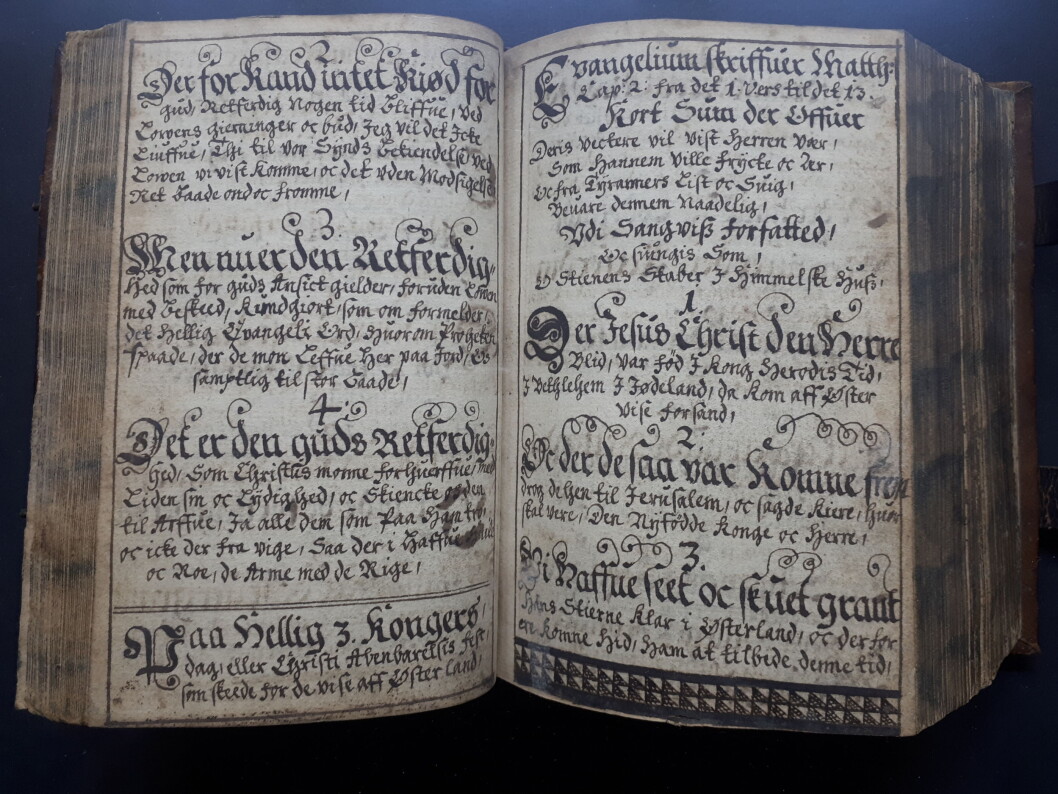 2.
Der for Kand intet Kiød for
gud, Retferdig Nogen tid Bliffue, Ved
Lowens gierninger oc bud, Jeg vil det Icke
Liuffue, Thi til vor Synds Bekiendelse ved
Lowen vi vist Komme, oc det vden Modsigelse
Ret Baade ond oc fromme,
3.
Men nu er den Retferdig-
hed som for guds Ansict gielder, foruden Lowen
med beskeed, Kundgiort, som om formelder,
det hellig Evangeli Ord, huorom Propheten
spaade, der de mon Leffue Her paa Jord,
samptlig til stor Baade,
4.
Det er den guds Retferdig-
hed, Som Christus monne forhuerffue, med
Liden sin oc Lydighed, oc Skiencke os den
til Arffue, Ja alle dem som Paa Ham tro,
oc icke der fra vige, Saa der i Haffue
oc Roe, de Arme med de Rige,
Paa Hellig 3. Kongers
dag, eller Christi Abenbarelsis fest,
som skeede for de vise aff Østerland,
Evangelium skriffuer Matth:
Cap: 2: fra det 1. Vers til det 13
Kort Sum der Offuer
Deris Vectere vil vist Herren Vær,
Som Hannem ville frycte oc Ær,
Oc fra Tyranners List oc Suig,
Bevare dennem Naadelig,
Vdi Sangviß forfatted,
Oc siungis Som,
O Stienens Skaber I Himmelske Huß,
1.
Der Jesus Christ den Herre
Blid, var fød I Kong Herodis Tid,
I Bethlehem I Jødeland, da kom aff Øster
vise forsand,
2.
Oc der de saa var Komne frem
drog de hen til Jerusalem, oc sagde Kiere, huor
skal vere, Den Nyfødde Konge oc Herre,
3.
Vi Haffue seet oc skuet grant
Hans Stierne Klar i Østerland, oc der for
ere Komne Hid, Ham at tilbede, denne tid,